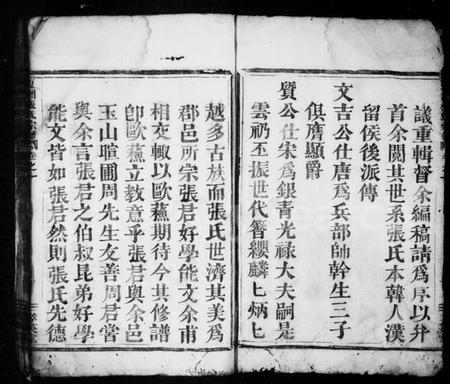 議重輯督余編稿請爲序以弁
首余閱其世系張氏本韓人漢
留侯後派傳
文吉公仕唐爲兵部師幹生三子
俱膺顯爵
質公仕宋爲銀青光禄大夫嗣是
雲礽丕振世代簪纓麟七炳七
越多古族而張氏世濟其美爲
郡邑所宗張君好學能文余甫
相交輙以歐蘇期待今其修譜
卽歐蘇立教意乎張君與余邑
玉山暄圃周先生友善周君嘗
與余言張君之伯叔昆弟好學
能文皆如張君然則張氏先德